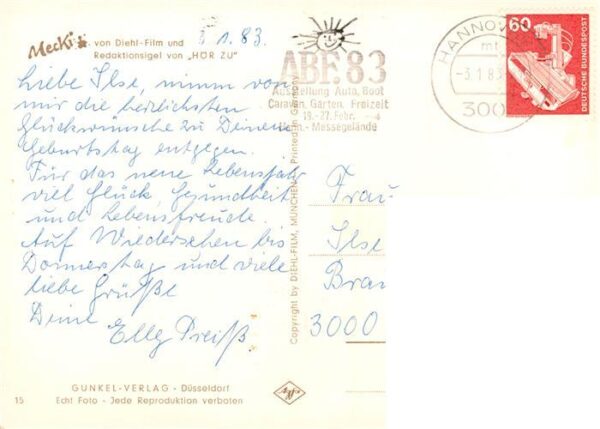 Mecki von Diehl-Film und
Redaktionsigel von „HÖR ZU"
3 1. 83.
Liebe Ilse, nimm von
mir die herzlichsten
Glückwünsche zu Deinem
Geburtstag entgegen.
Für das neue Lebensjahr
viel Glück, Gesundheit
und Lebensfreude.
Auf Wiedersehen bis
Donnerstag und viele
liebe Grüße
Deine
Elly Preiß.
GUNKEL-VERLAG - Düsseldorf
15 Echt Foto - Jede Reproduktion verboten
Copyright by DIEHL-FILM, MÜNCHEN Printed in Germany
Agfa
ABF. 83
Ausstellung Auto, Boot
Caravan, Garten, Freizeit
19.-27. Febr.
Messegelände
HANNOV
mt
-3.1.83
300
60
DEUTSCHE BUNDESPOST
Frau
Ilse
Brau
3000